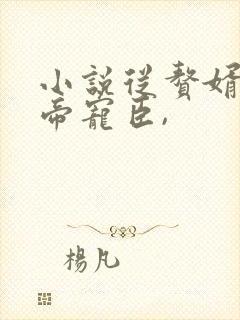 小説從贅婿
帝寵臣,
楊凡